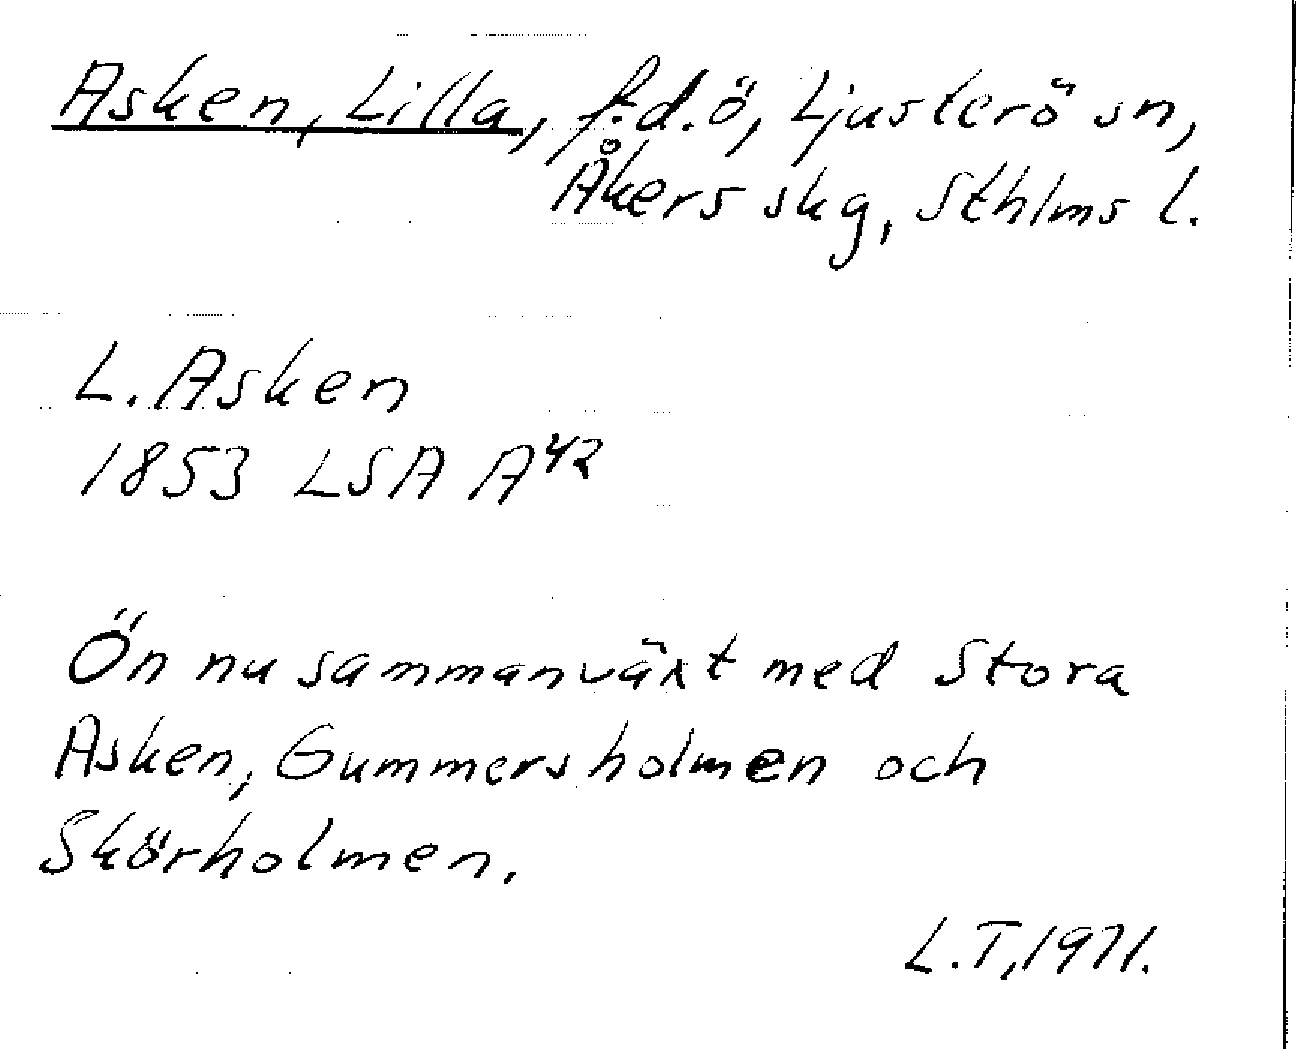 Asken, Lilla, f.d.ö, Ljusterö sn,
Åkers skg, Sthlms l.
L. Asken
1853 LSA A42
Ön nu sammanväxt med Stora
Asken, Gummersholmen och
Skörholmen.
L.T, 1971.